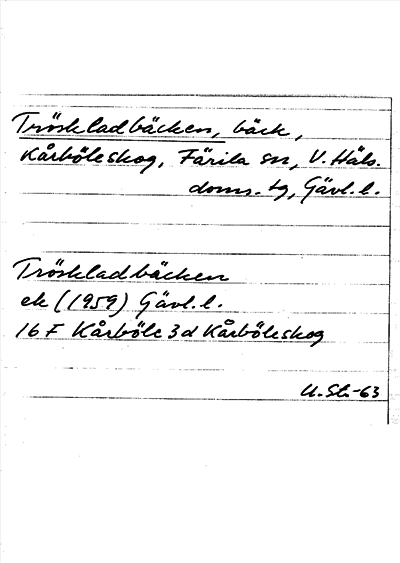 Tröskladbäcken, bäck,
Kårböleskog, Färila sn, V. Häls.
doms. tg, Gävl. l.
Tröskladbäcken
ek (1959) Gävl. l.
16 F Kårböle 3 d Kårböleskog
U. St. -63